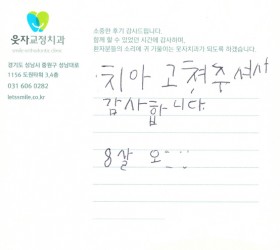 웃자교정치과
경기도 성남시 중원구 성남대로
1156 도원하이 3,4층
031 606 0282
letssmile.co.kr
소중한 후기 감사드립니다.
함께 할 수 있었던 시간에 감사하며,
환자분들의 소리에 귀 기울이는 웃자치과가 되도록 하겠습니다.
치아 고쳐주셔서
감사합니다
8살 오